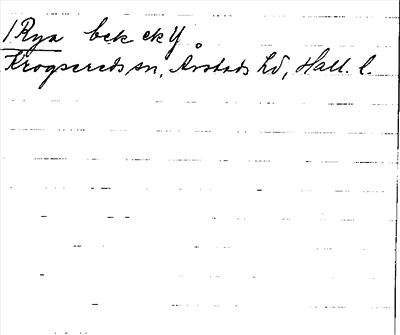 1 Rya bek ek y
Krogsereds sn, Årstads hd, Hall. l.